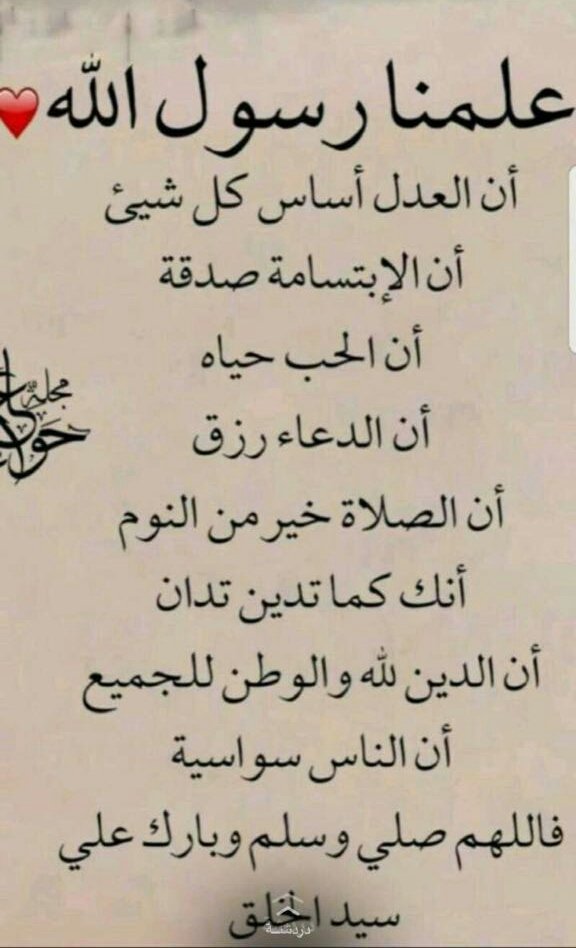 علمنا رسول الله
أن العدل أساس كل شيئ
أن الإبتسامة صدقة
أن الحب حياه
أن الدعاء رزق
أن الصلاة خير من النوم
أنك كما تدين تدان
أن الدين لله والوطن للجميع
أن الناس سواسية
فاللهم صلي وسلم وبارك علي
سيد الخلق
مجلة
دردشة